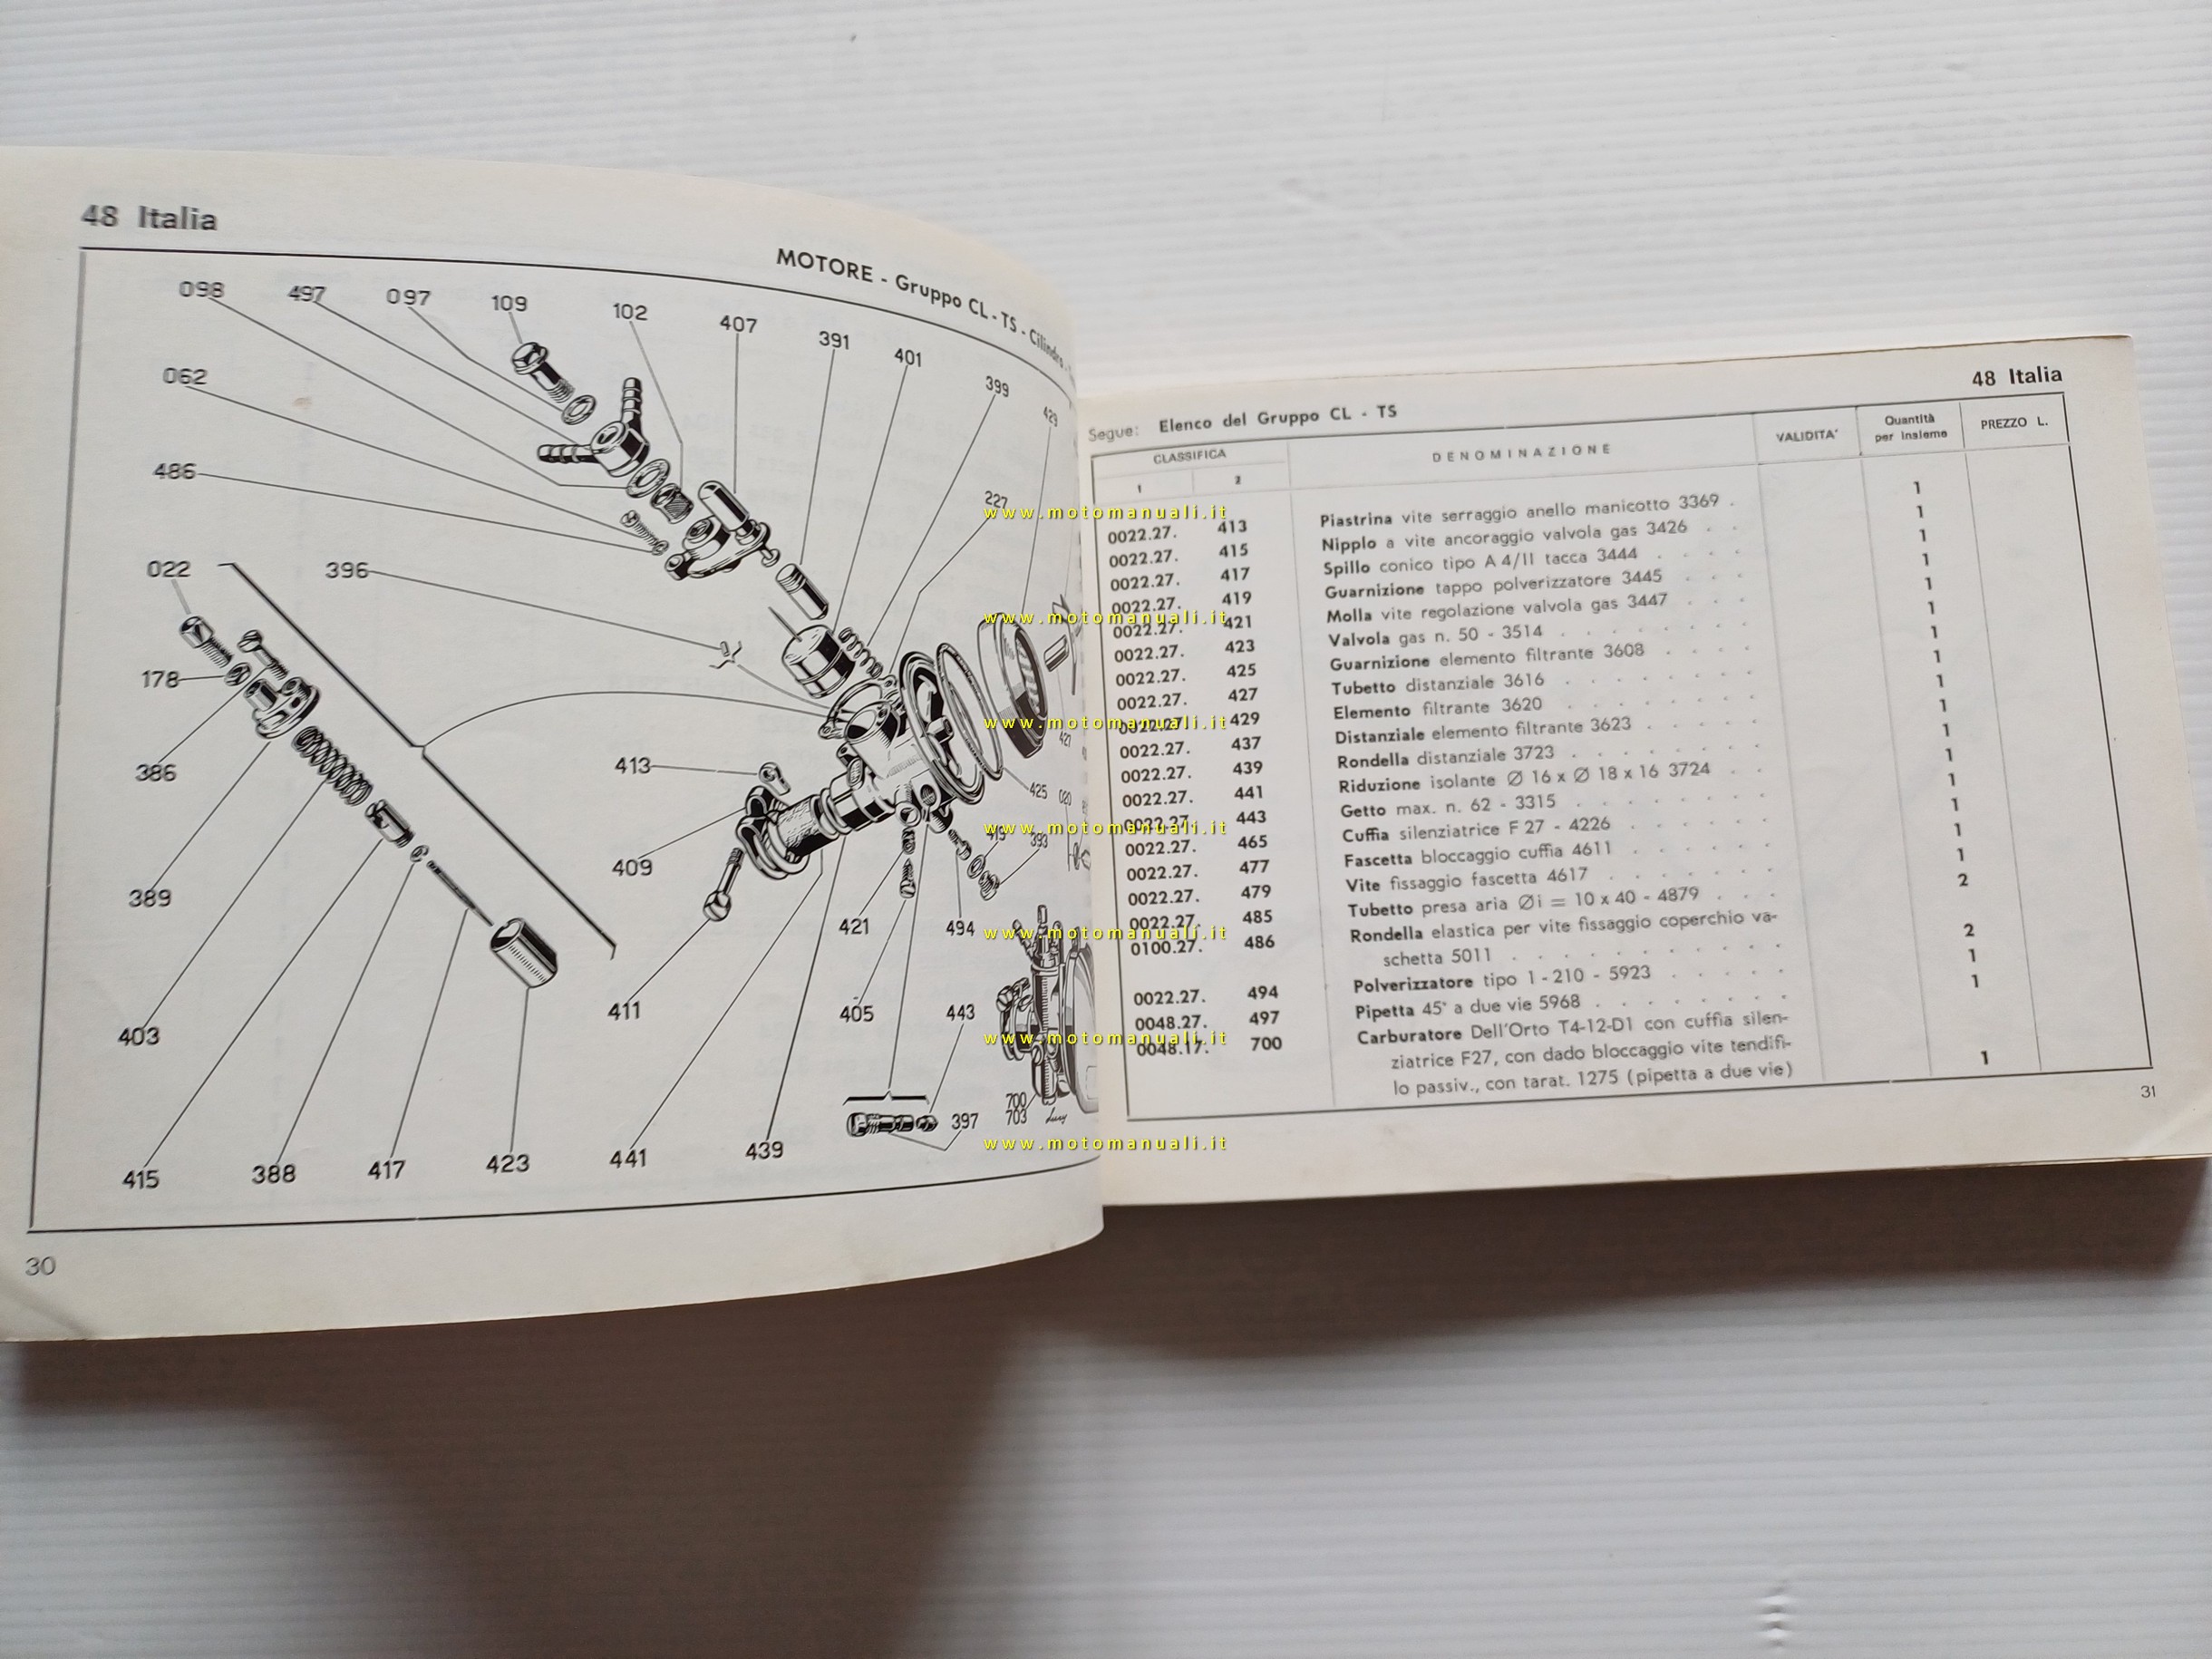 48 Italia
MOTORE - Gruppo CL - TS - Cilindro
098
497
097
109
102
407
391
401
399
429
062
486
227
022
396
178
386
413
427
425
020
409
389
393
421
494
411
405
443
403
700
703
397
415
388
417
423
441
439
30
48 Italia
Segue: Elenco del Gruppo CL - TS
CLASSIFICA
1 2
DENOMINAZIONE
VALIDITA'
Quantità
per insieme
PREZZO L.
0022.27. 413 Piastrina vite serraggio anello manicotto 3369 . 1
0022.27. 415 Nipplo a vite ancoraggio valvola gas 3426 . . 1
0022.27. 417 Spillo conico tipo A 4/II tacca 3444 . . . . 1
0022.27. 419 Guarnizione tappo polverizzatore 3445 . . . 1
0022.27. 421 Molla vite regolazione valvola gas 3447 . . . 1
0022.27. 423 Valvola gas n. 50 - 3514 . . . . . . . 1
0022.27. 425 Guarnizione elemento filtrante 3608 . . . . 1
0022.27. 427 Tubetto distanziale 3616 . . . . . . . 1
0022.27. 429 Elemento filtrante 3620 . . . . . . . 1
0022.27. 437 Distanziale elemento filtrante 3623 . . . . 1
0022.27. 439 Rondella distanziale 3723 . . . . . . 1
0022.27. 441 Riduzione isolante Ø 16 x Ø 18 x 16 3724 . . 1
0022.27. 443 Getto max. n. 62 - 3315 . . . . . . 1
0022.27. 465 Cuffia silenziatrice F 27 - 4226 . . . . . 1
0022.27. 477 Fascetta bloccaggio cuffia 4611 . . . . . 1
0022.27. 479 Vite fissaggio fascetta 4617 . . . . . . 1
0022.27. 485 Tubetto presa aria Øi = 10 x 40 - 4879 . . . 2
0100.27. 486 Rondella elastica per vite fissaggio coperchio va-
schetta 5011 . . . . . . . . . 2
0022.27. 494 Polverizzatore tipo 1 - 210 - 5923 . . . . . 1
0048.27. 497 Pipetta 45° a due vie 5968 . . . . . . . 1
0048.17. 700 Carburatore Dell'Orto T4-12-D1 con cuffia silen-
ziatrice F27, con dado bloccaggio vite tendifi-
lo passiv., con tarat. 1275 (pipetta a due vie) 1
31
www.motomanuali.it
www.motomanuali.it
www.motomanuali.it
www.motomanuali.it
www.motomanuali.it
www.motomanuali.it
www.motomanuali.it